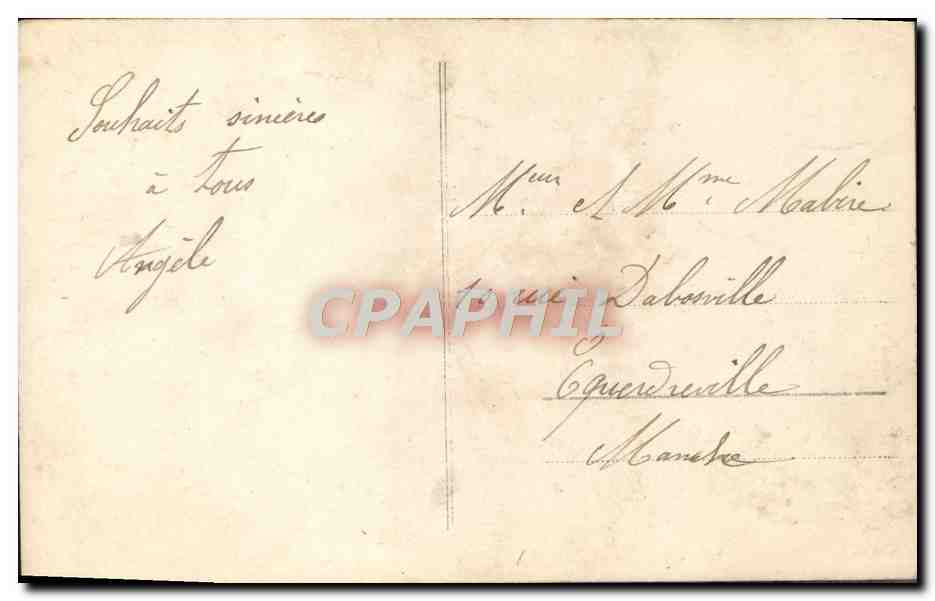 Souhaits sincères
à tous
Angèle
Meur & Mme Mabire
rue Dabosville
Equerdreville
Manche
CPAPHIL